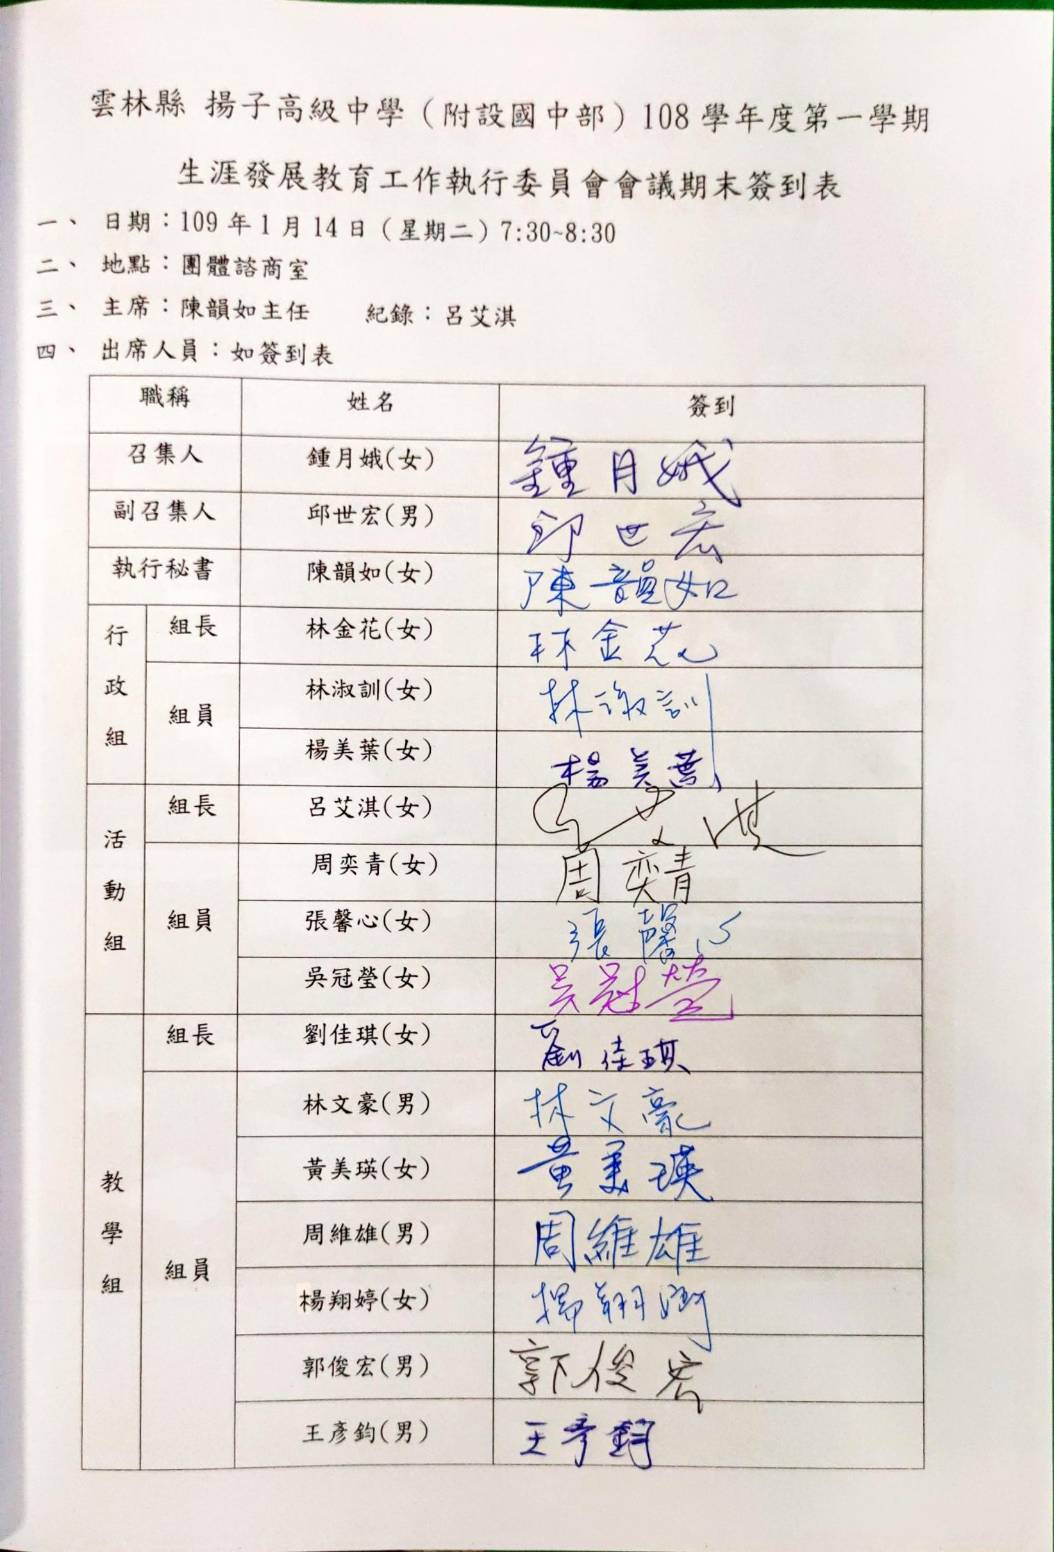 雲林縣 揚子高級中學（附設國中部）108學年度第一學期
生涯發展教育工作執行委員會會議期末簽到表
一、 日期：109年1月14日（星期二）7:30~8:30
二、 地點：團體諮商室
三、 主席：陳韻如主任 紀錄：呂艾淇
四、 出席人員：如簽到表
職稱 姓名 簽到
召集人 鍾月娥(女) 鍾月娥
副召集人 邱世宏(男) 邱世宏
執行秘書 陳韻如(女) 陳韻如
行政組 組長 林金花(女) 林金花
組員 林淑訓(女) 林淑訓
楊美葉(女) 楊美葉
活動組 組長 呂艾淇(女) 呂艾淇
組員 周奕青(女) 周奕青
張馨心(女) 張馨心
吳冠瑩(女) 吳冠瑩
教學組 組長 劉佳琪(女) 劉佳琪
組員 林文豪(男) 林文豪
黃美瑛(女) 黃美瑛
周維雄(男) 周維雄
楊翔婷(女) 楊翔婷
郭俊宏(男) 郭俊宏
王彥鈞(男) 王彥鈞